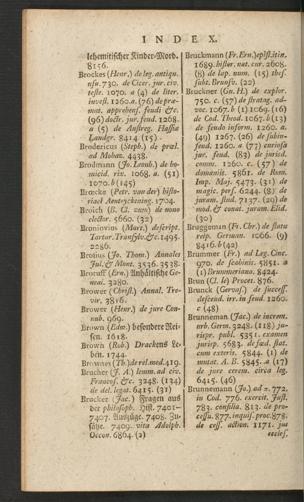 INDEX.
lehemitischer Kinder-Mord.
8156.
Brockes (Henr.) de leg. antiqu.
usu. 730. de Cicer. jur. civ.
teste. 1070. a (4) de liter.
invest. 1260. a. (76) de promat. apprehens. feudi &c.
(96) doctr. jur. feud. 1268.
a (5) de Austreg. Hassiæ
Landgr. 8414 (15)
Brodericus (Steph.) de præl.
ad Mohan. 4438.
Brodmann (Jo. Lamb.) de homicid. rix. 1068. a. (51)
1070. b (145)
Brœcke (Petr. van der) historiael Aenteyckening. 1704.
Broich (B. Cl. van) de mono
elector. 5660. (32)
Broniovius (Mart.) descript.
Tartar. Transsylv. &c. 1495.
2286.
Brotius (Jo. Thom.) Annales
Jul. & Mont. 3536. 3538.
Brotuff (Ern.) Anhältische Genea. 3280.
Brower (Christ.) Annal. Trevir. 3816.
Brower (Henr.) de jure Connub. 969.
Brown (Edm.) besondere Reisen. 1618.
Brown (Rob.) Drackens Leben. 1744.
Brownes (Th.) de rel. med. 419.
Brucher (J. A.) lemm. ad civ.
Francof. &c. 3248. (134)
de del. legat. 6415. (31)
Brucker (Jac.) Fragen aus
der philosoph. Hist. 7401-
7407. Auszüge. 7408. Zusätze. 7409. vita Adolph.
Occon. 6864. (2)
Bruckmann (Fr. Ern.) epist. itin.
1689. histor. nat. cur. 2608.
(8) de lap. num. (15) thes.
subt. Brunsv. (22)
Bruckner (Gu. H.) de explor.
750. c. (57) de stratag. advoc. 1067. b (1) 1069. (16)
de Cod. Theod. 1067. b (13)
de feudo inform. 1260. a.
(49) 1267. (26) de subinfeud. 1260. a (77) curiosa
jur. feud. (83) de jurisd.
comm. 1260. c. (57) de
domaniis. 5861. de Rom.
Imp. Maj. 5473. (31) de
magic. perf. 6244. (8) de
juram. stud. 7137. (29) de
mod. & conat. juram. Elid.
(30)
Bruggeman (Fr. Chr.) de statu
reip. German. 1066. (9)
8416. b (42)
Brummer (Fr.) ad Leg. Cinc.
970. de scabinis. 5851. a
(1) Brummeriana. 8424.
Brun (Cl. le) Procet. 876.
Brunck (Gerva.) de success.
descend. irr. in feud. 1260.
c (48)
Brunneman (Jac.) de increm.
urb. Germ. 3248. (118) jurispr. publ. 5351. examen
jurisp. 5683. de fœd. stat.
cum exteris. 5844. (1) de
mutat. A. B. 5845. a (17)
de jure cerem. circa leg.
6415. (46)
Brunnemann (Jo.) ad n. 772.
in Cod. 776. exercit. Just.
783. consilia. 813. de processu. 877. inquis. proc. 878.
de cess. action. 1171. jus
eccles.